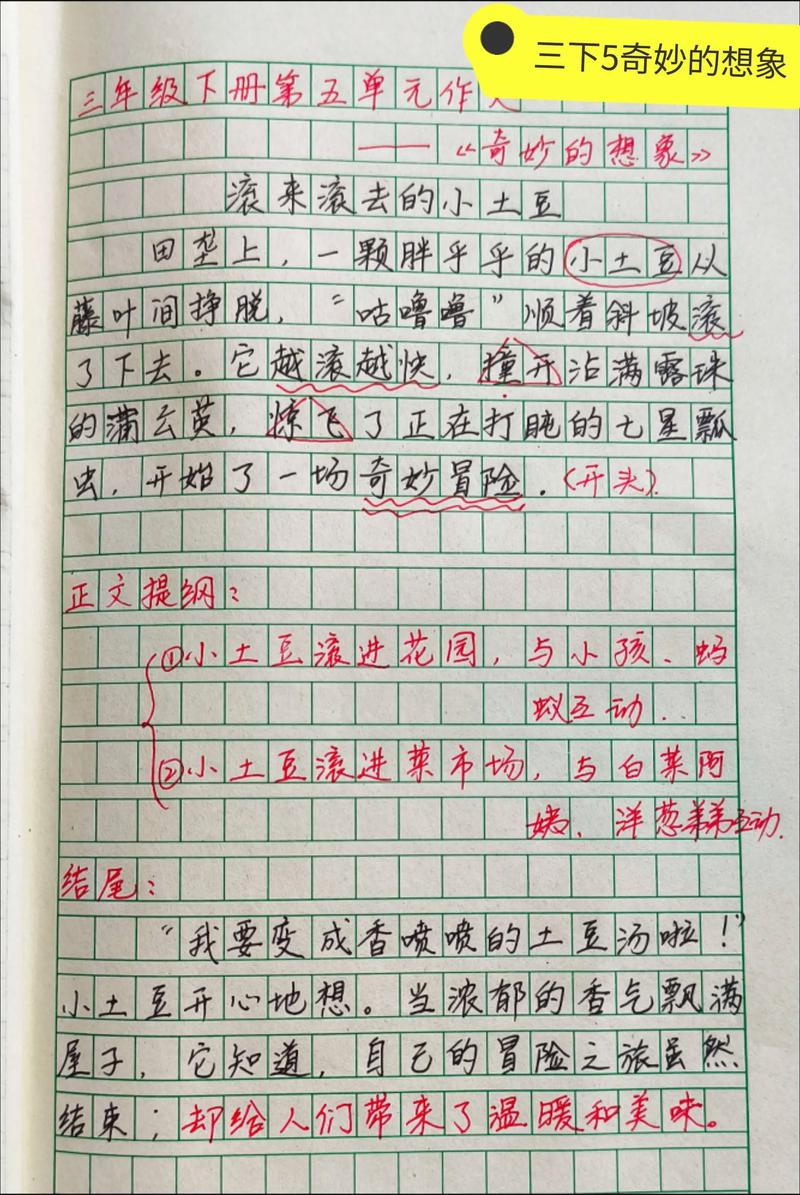 三下5奇妙的想象
三年级下册第五单元作
——《奇妙的想象》
滚来滚去的小土豆
田垄上，一颗胖乎乎的小土豆从
藤叶间挣脱，“咕噜噜”顺着斜坡滚
了下去。它越滚越快，撞开沾满露珠
的蒲公英，惊飞了正在打盹的七星瓢
虫，开始了一场奇妙冒险。（开头）
正文提纲：
①小土豆滚进花园，与小孩、蚂
蚁互动..
②小土豆滚进菜市场，与白菜阿
姨、洋葱弟弟互动.
结尾：
“我要变成香喷喷的土豆汤啦！”
小土豆开心地想。当浓郁的香气飘满
屋子，它知道，自己的冒险之旅虽然
结束；却给人们带来了温暖和美味。